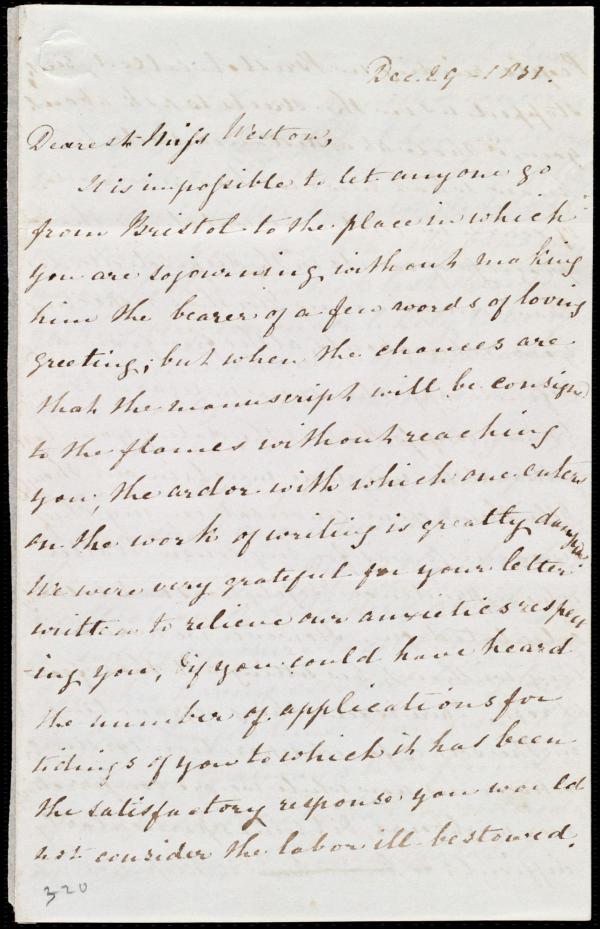 Dec. 29 - 1851.
Dearest Miss Weston,
It is impossible to let anyone go
from Bristol to the place in which
you are sojourning, without making
him the bearer of a few words of loving
greeting; but when the chances are
that the manuscript will be consign
to the flames without reaching
you, the ardor with which one enters
on the work of writing is greatly
We were very grateful for your letter
written to relieve our anxieties respect
-ing you, & if you could have heard
the number of applications for
tidings of you to which it has been
the satisfactory response you would
not consider the labor ill bestowed.
320